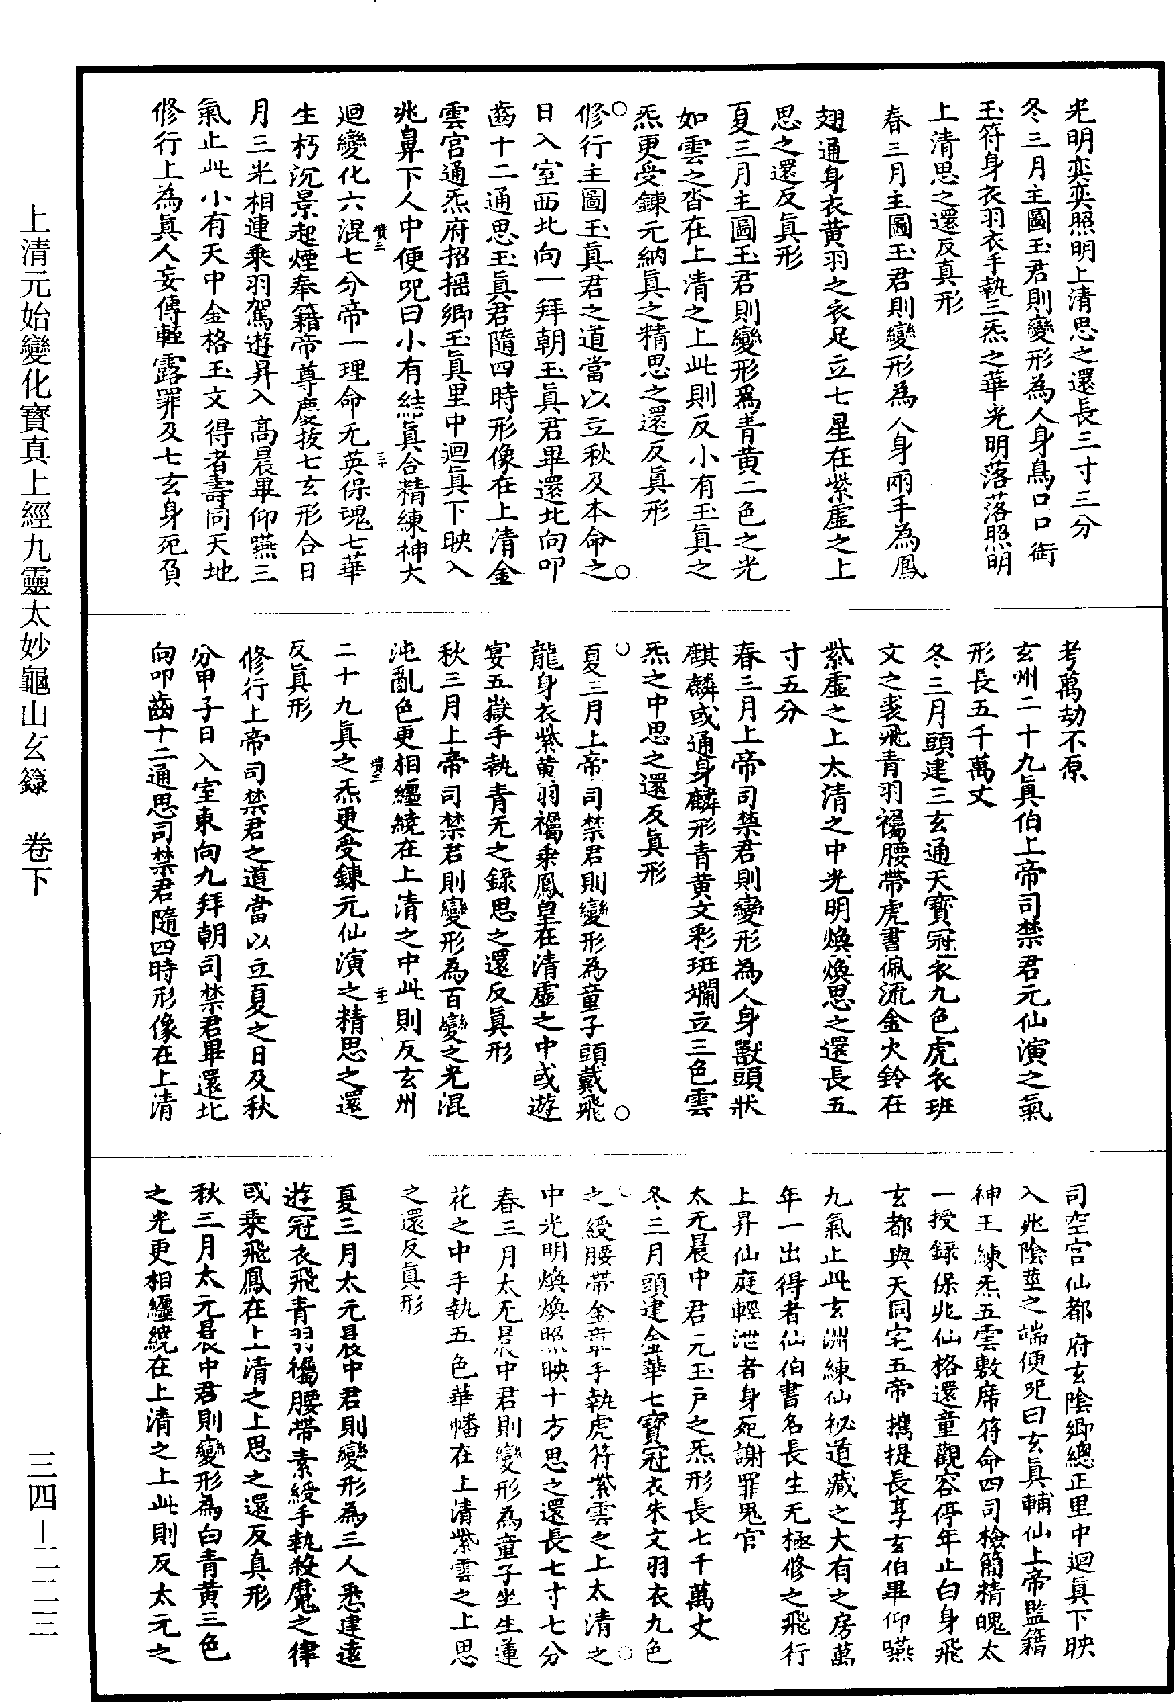 光明奕奕照明上清思之還長三寸三分
冬三月主圖玉君則變形為人身鳥口口銜
玉符身衣羽衣手執三炁之華光明落落照明
上清思之還反真形
春三月主圖玉君則變形為人身兩手為鳳
翅通身衣黃羽之衣足立七星在紫虛之上
思之還反真形
夏三月主圖玉君則變形爲青黃二色之光
如雲之沓在上清之上此則反小有玉真之
炁更受鍊元納真之精思之還反真形
修行主圖玉真君之道當以立秋及本命之
日入室西北向一拜朝玉真君畢還北向叩
齒十二通思玉真君隨四時形像在上清金
雲宫通炁府招摇鄉玉真里中迴真下映入
兆鼻下人中便咒曰小有結真合精練神大
迴變化六混七分帝一理命无英保魂七華
生朽沉景起煙奉籍帝尊慶拔七玄形合日
月三光相連乘羽駕遊昇入高晨畢仰嚥三
氣止此小有天中金格玉文得者壽同天地
修行上為真人妄傳輕露罪及七玄身死負
考萬劫不原
玄州二十九真伯上帝司禁君元仙演之氣
形長五千萬丈
冬三月頭建三玄通天寶冠衣九色虎衣班
文之裘飛青羽𧝶腰帶虎書佩流金火鈴在
紫虛之上太清之中光明煥煥思之還長五
寸五分
春三月上帝司禁君則變形為人身獸頭狀
麒麟或通身麟形青黃文彩班斕立三色雲
炁之中思之還反真形
夏三月上帝司禁君則變形為童子頭戴飛
龍身衣紫黃羽𧝶乘鳳皇在清虛之中或遊
宴五嶽手執青元之錄思之還反真形
秋三月上帝司禁君則變形為百變之光混
沌亂色更相纏繞在上清之中此則反玄州
二十九真之炁更受鍊元仙演之精思之還
反真形
修行上帝司禁君之道當以立夏之日及秋
分甲子日入室東向九拜朝司禁君畢還北
向叩齒十二通思司禁君隨四時形像在上清
司空宫仙都府玄陰鄉總正里中迴真下映
入兆陰莖之端便咒曰玄真輔仙上帝監籍
神王練炁五雲敷席符命四司檢簡精魄太
一授録保兆仙格還童觀容停年止白身飛
玄都與天同宅五帝擕提長享玄伯畢仰嚥
九氣止此玄洲練仙祕道藏之大有之房萬
年一出得者仙伯書名長生无極修之飛行
上昇仙庭輕泄者身死謝罪鬼官
太无晨中君元玉户之炁形長七千萬丈
冬三月頭建金華七寶冠衣朱文羽衣九色
之綬腰帶金章手執虎符紫雲之上太清之
中光明煥煥照映十方思之還長七寸七分
春三月太无晨中君則變形為童子坐生蓮
花之中手執五色華幡在上清紫雲之上思
之還反真形
夏三月太元晨中君則變形為三人悉建遠
遊冠衣飛青羽𧝶腰帶素綬手執殺魔之律
或乘飛鳳在上清之上思之還反真形
秋三月太元晨中君則變形為白青黃三色
之光更相纏繞在上清之上此則反太元之
上清元始變化寶真上經九靈太妙龜山玄籙 卷下
三四—二二三